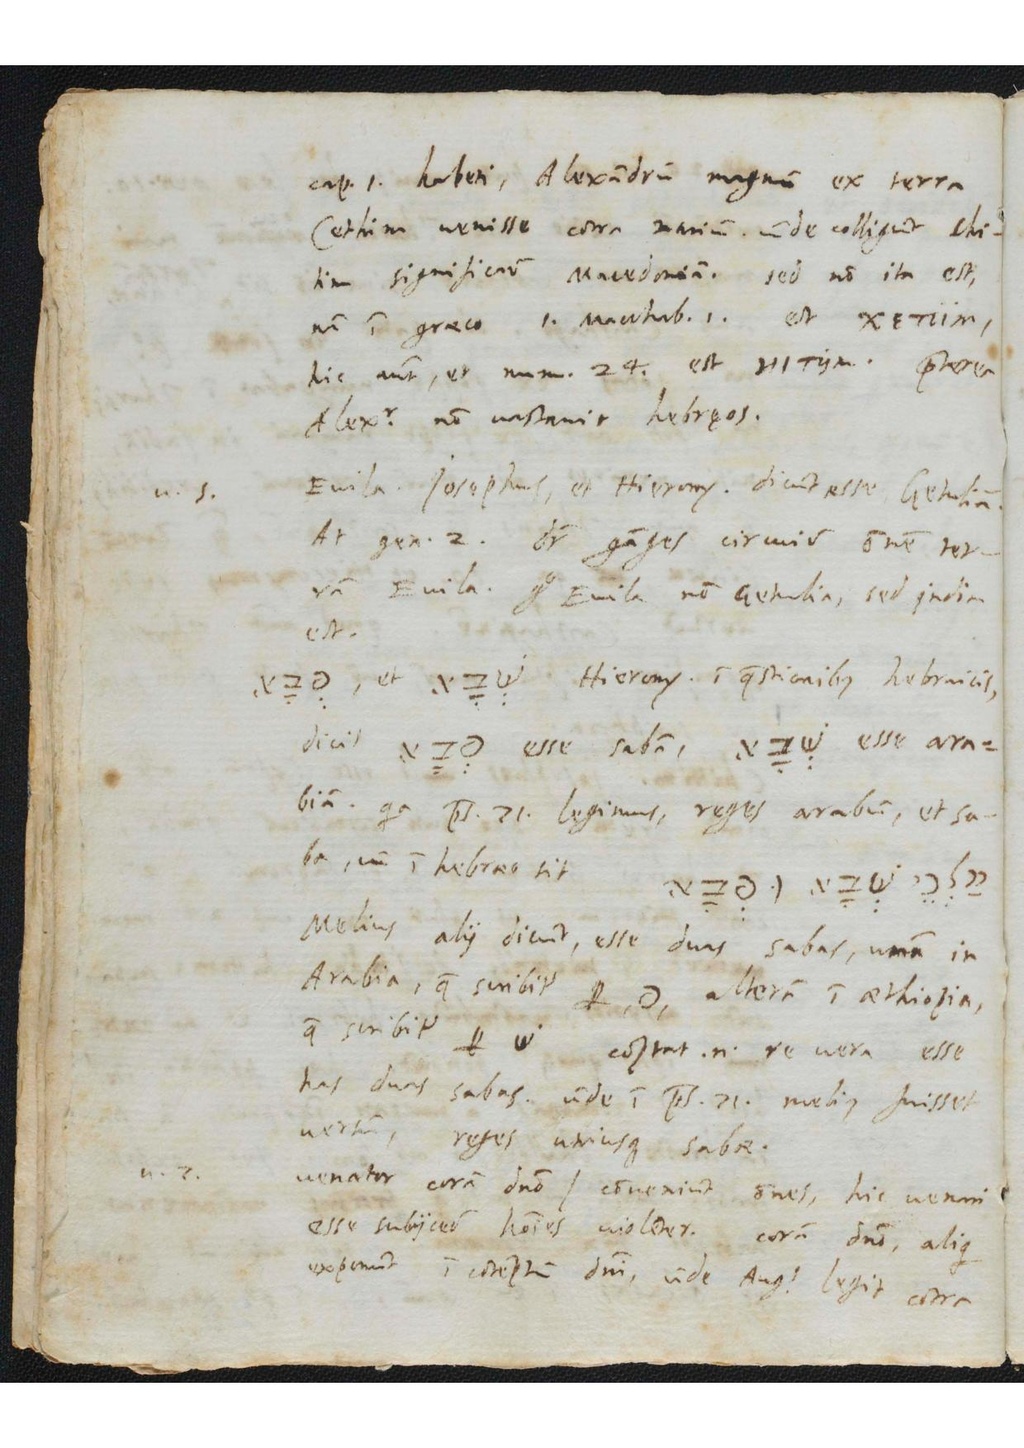 cap. 1. haberi, Alexādrū magnū ex terra
Cethim uenisse cōtra Darium. ūde colligūt Chi-
tim significarē Macedoniā. sed nō ita est,
nā ī graeco 1. Machab. 1. est ΧΕΤΙΙΜ,
hic aūt, et num. 24. est ΚΙΤΙΙΜ. p̄terea
Alex.r nō uastauit hebręos.
u. 5. Euila. Josephus, et Hierony. dicūt esse Gętuliā.
At gen. 2. dr̄ gāges circuirē ōnē ter-
rā Euila. gº Euila nō Gętulia, sed jndia
est.
סְבָא, et שְׁבָא Hierony. ī q̄stionibꝫ hebraicis,
dicit סְבָא esse sabā, שְׁבָא esse ara=
biā. qa ps̄. 71. legimus, reges arabū, et sa-
ba, cū ī hebręo sit מַלְכֵי שְׁבָא וּסְבָא
Melius alij dicūt, esse duas sabas, unā in
Arabia, q̄ scribit' ꝑ ס, alterā ī æthiopia,
q̄ scribit' ꝑ שׁ cōstat .n. re uera esse
has duas sabas. ūde ī ps̄. 71. meliꝫ fuisset
uersū, reges utriusq; sabæ.
u. 7. uenator corā dnō / cōueniūt ōnes, hic uenari
esse subijcerē hoīes uiolēter. corā dnō, aliq
exponūt ī cōtēptū dnī, ūde Aug.s legit cōtra